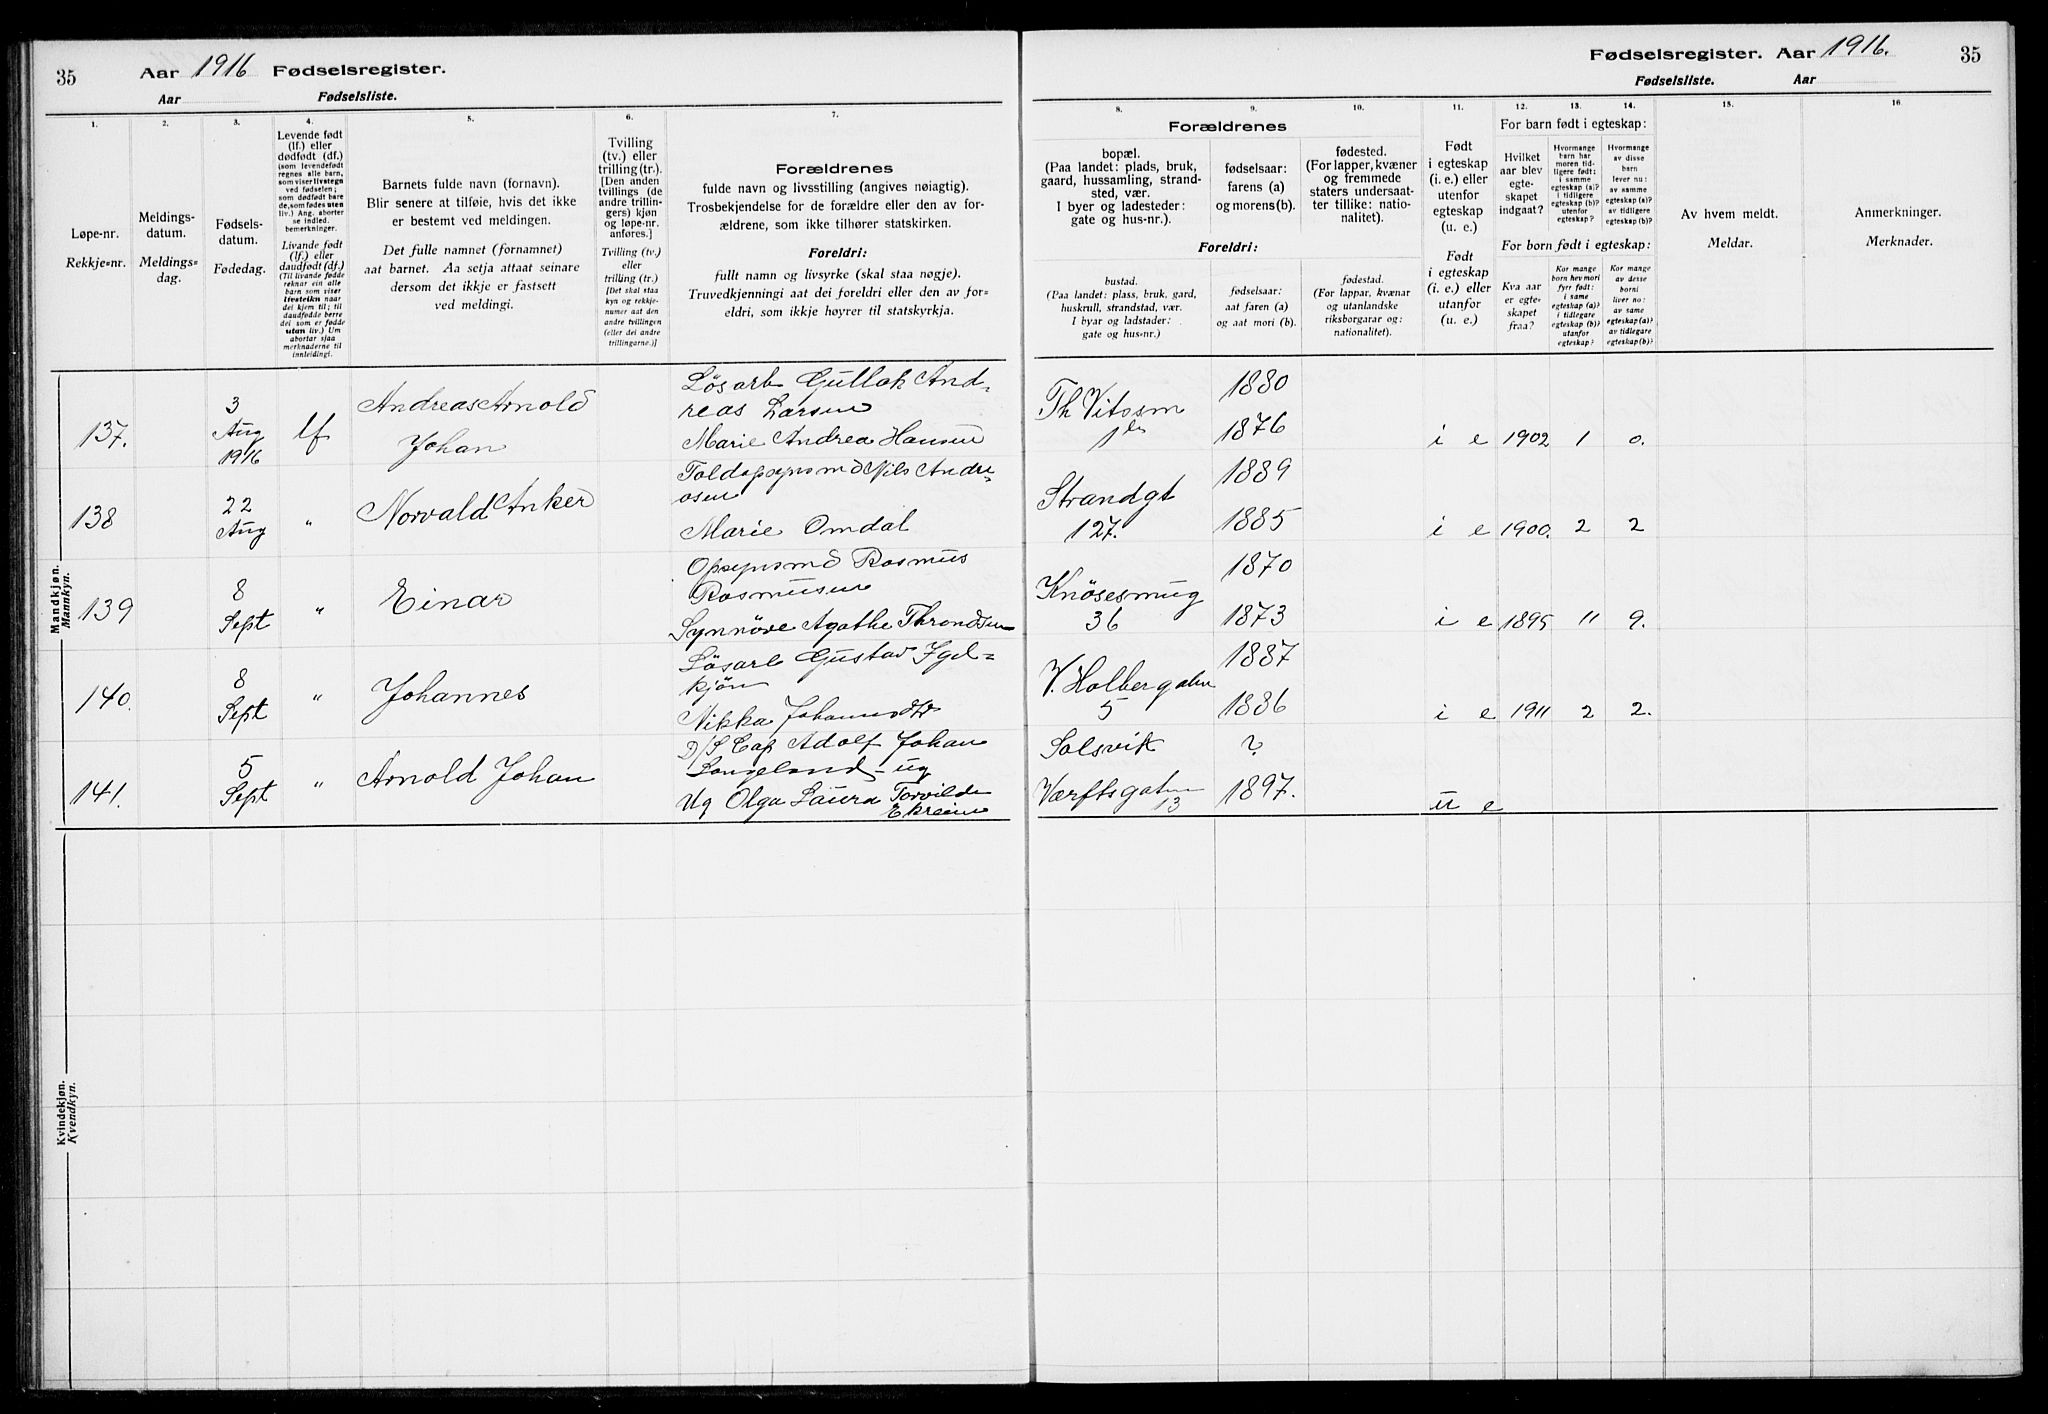 35 Aar 1916 Fødselsregister.
Aar Fødselsliste.
1.
2.
3.
4.
5.
6.
7.
Løpe-nr.
Rekkje=nr.
Meldings-
datum.
Meldings=
dag.
Fødsels-
datum.
Fødedag.
Levende født
(lf.) eller
dødfødt (df.)
(som levendefødt
regnes alle barn,
som viser livstegn
ved fødselen;
som dødfødt bare
de, som fødes uten
liv.) Ang. aborter
se indled.
bemerkninger.
Livande født
(lf.) eller
daudfødt (df.)
(Til livande fødde
reknar ein alle
barn som viser
livsteikn naar
dei kjem til; til
daudfødde berre
dei som er fødde
utan liv.) Um
abortar sjaa
merknaderne til
innleidingi.
Barnets fulde navn (fornavn).
Blir senere at tilføie, hvis det ikke
er bestemt ved meldingen.
Det fulle namnet (fornamnet)
aat barnet. Aa setja attaat seinare
dersom det ikkje er fastsett
ved meldingi.
Tvilling
(tv.) eller
trilling (tr.).
[Den anden
tvillings (de
andre trillin-
gers) kjøn
og løpe-nr.
anføres.]
Tvilling (tv.)
eller
trilling (tr.)
[Det skal staa
kyn og rekkje-
numer aat den
andre tvillingen
(eller dei andre
trillingarne.)]
Forældrenes
fulde navn og livsstilling (angives nøiagtig).
Trosbekjendelse for de forældre eller den av for-
ældrene, som ikke tilhører statskirken.
Foreldri:
fullt namn og livsyrke (skal staa nøgje).
Truvedkjenningi aat dei foreldri eller den av for=
eldri, som ikkje høyrer til statskyrkja.
Mandkjøn.
Mannkyn.
137.
3
Aug
1916
lf
Andreas Arnold
Johan
Løsarb Gullak And-
reas Larsen
Marie Andrea Hansen
138
22
Aug
"
Norvald Anker
Toldopsynsmd Nils Andre-
asen
Marie Omdal
139
8
Sept
"
Einar
Opsynsmd Rasmus
Rasmussen
Synnöve Agathe Throndsen
140.
8
Sept
"
Johannes
Løsarb Gustav Igel=
kjøn
Nikka Johannesdtr
141.
5
Sept
"
Arnold Johan
D/S Cap Adolf Johan
Langeland - ug
Ug Olga Laura Torvilde
Ekreim
Kvindekjøn.
Kvendkyn.
Fødselsregister. Aar 1916. 35
Fødselsliste. Aar
8.
9.
10.
11.
12.
13.
14.
15.
16.
Forældrenes
bopæl.
(Paa landet: plads, bruk,
gaard, hussamling, strand-
sted, vær.
I byer og ladesteder:
gate og hus-nr.)
fødselsaar:
farens (a)
og morens (b).
fødested.
(For lapper, kvæner
og fremmede
staters undersaat-
ter tillike: natio-
nalitet).
Foreldri:
bustad.
(Paa landet: plass, bruk, gard,
huskrull, strandstad, vær.
I byar og ladstader:
gate og hus-nr.)
fødselsaar:
aat faren (a)
og aat mori (b).
fødestad.
(For lappar, kvænar
og utanlandske
riksborgarar og:
nationalitet).
Født
i egteskap
(i. e.) eller
utenfor
egteskap
(u. e.)
Født
i egteskap
(i. e.) eller
utanfor
egteskap
(u. e.)
For barn født i egteskap:
Hvilket
aar blev
egte-
skapet
indgaat?
Hvormange
barn har
moren tid-
ligere født:
i samme
egteskap (a)?
i tidligere
egteskap (b)?
utenfor
egteskap?
Hvormange
av disse
barn
lever nu:
av samme
egteskap (a)?
av tidligere
egteskap (b)?
For born født i egteskap:
Kva aar
er egte=
skapet
fraa?
Kor mange
born hev mori
fyrr født:
i same
egteskap (a)?
i tidlegare
egteskap (b)?
utanfor
egteskap?
Kor mange
av desse
borni
liver no:
av same
egteskap (a)?
av tidlegare
egteskap (b)?
Av hvem meldt.
Meldar.
Anmerkninger.
Merknader.
Th Vitosm
1
1880
1876
i e 1902 1 0.
Strandgt
127.
1889
1885
i e 1900. 2 2
Knösesmug
36
1870
1873
i e 1895 11 9.
V. Holbergalm
5
1887
1886
i e 1911 2 2.
Solsvik
?
Værftsgaten
13
1897.
u e